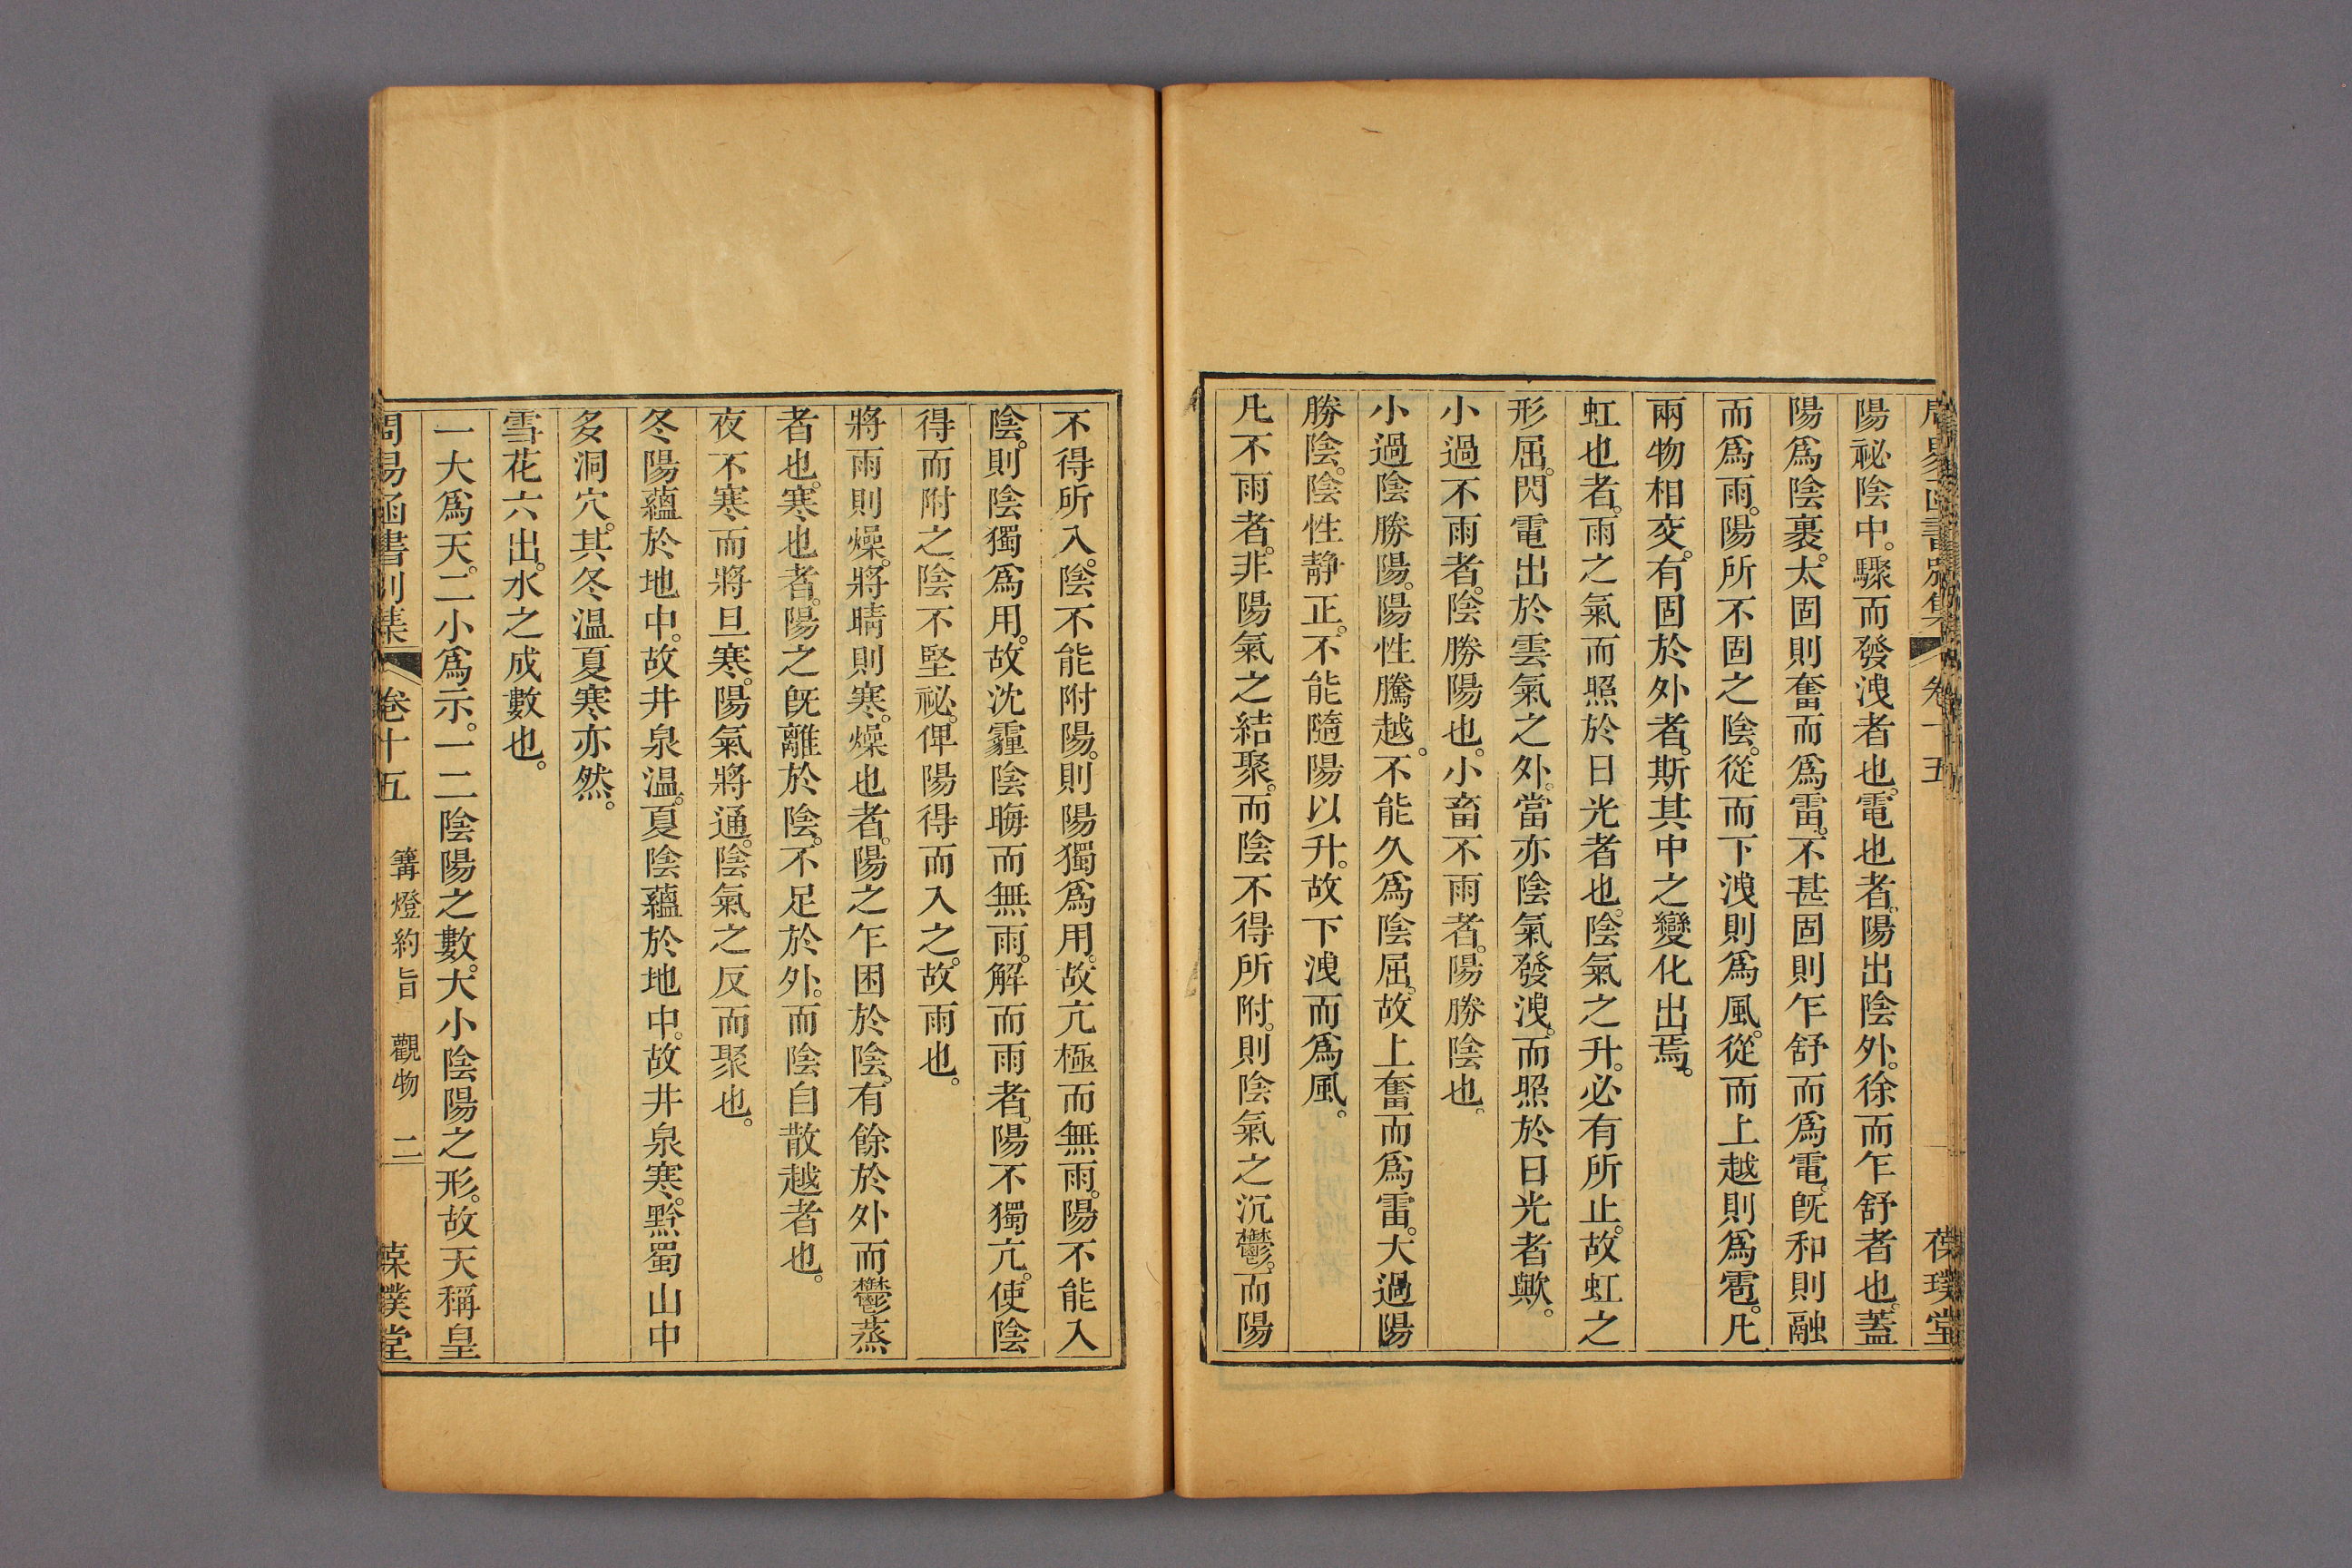 周易函書別集 卷十五 葆璞堂
陽祕陰中。驟而發洩者也。電也者。陽出陰外。徐而乍舒者也。蓋
陽爲陰裹。太固則奮而爲雷。不甚固則乍舒而爲電。旣和則融
而爲雨。陽所不固之陰。從而下洩則爲風。從而上越則爲雹。凡
兩物相交。有固於外者。斯其中之變化出焉。
虹也者。雨之氣而照於日光者也。陰氣之升。必有所止。故虹之
形屈。閃電出於雲氣之外。當亦陰氣發洩。而照於日光者歟。
小過不雨者。陰勝陽也。小畜不雨者。陽勝陰也。
小過陰勝陽。陽性騰越。不能久爲陰屈。故上奮而爲雷。大過陽
勝陰。陰性静正。不能隨陽以升。故下洩而爲風。
凡不雨者。非陽氣之結聚。而陰不得所附。則陰氣之沉鬱。而陽
不得所入。陰不能附陽。則陽獨爲用。故亢極而無雨。陽不能入
陰。則陰獨爲用。故沈霾陰晦而無雨。解而雨者。陽不獨亢。使陰
得而附之。陰不堅祕。俾陽得而入之。故雨也。
將雨則燥。將晴則寒。燥也者。陽之乍困於陰。有餘於外而鬱蒸
者也。寒也者。陽之旣離於陰。不足於外。而陰自散越者也。
夜不寒而將旦寒。陽氣將通。陰氣之反而聚也。
冬陽蘊於地中。故井泉温。夏陰蘊於地中。故井泉寒。黔蜀山中
多洞穴。其冬温夏寒亦然。
雪花六出。水之成數也。
一大爲天。二小爲示。一二陰陽之數。大小陰陽之形。故天稱皇
周易函書別集 卷十五 篝燈約旨 觀物 二 葆璞堂